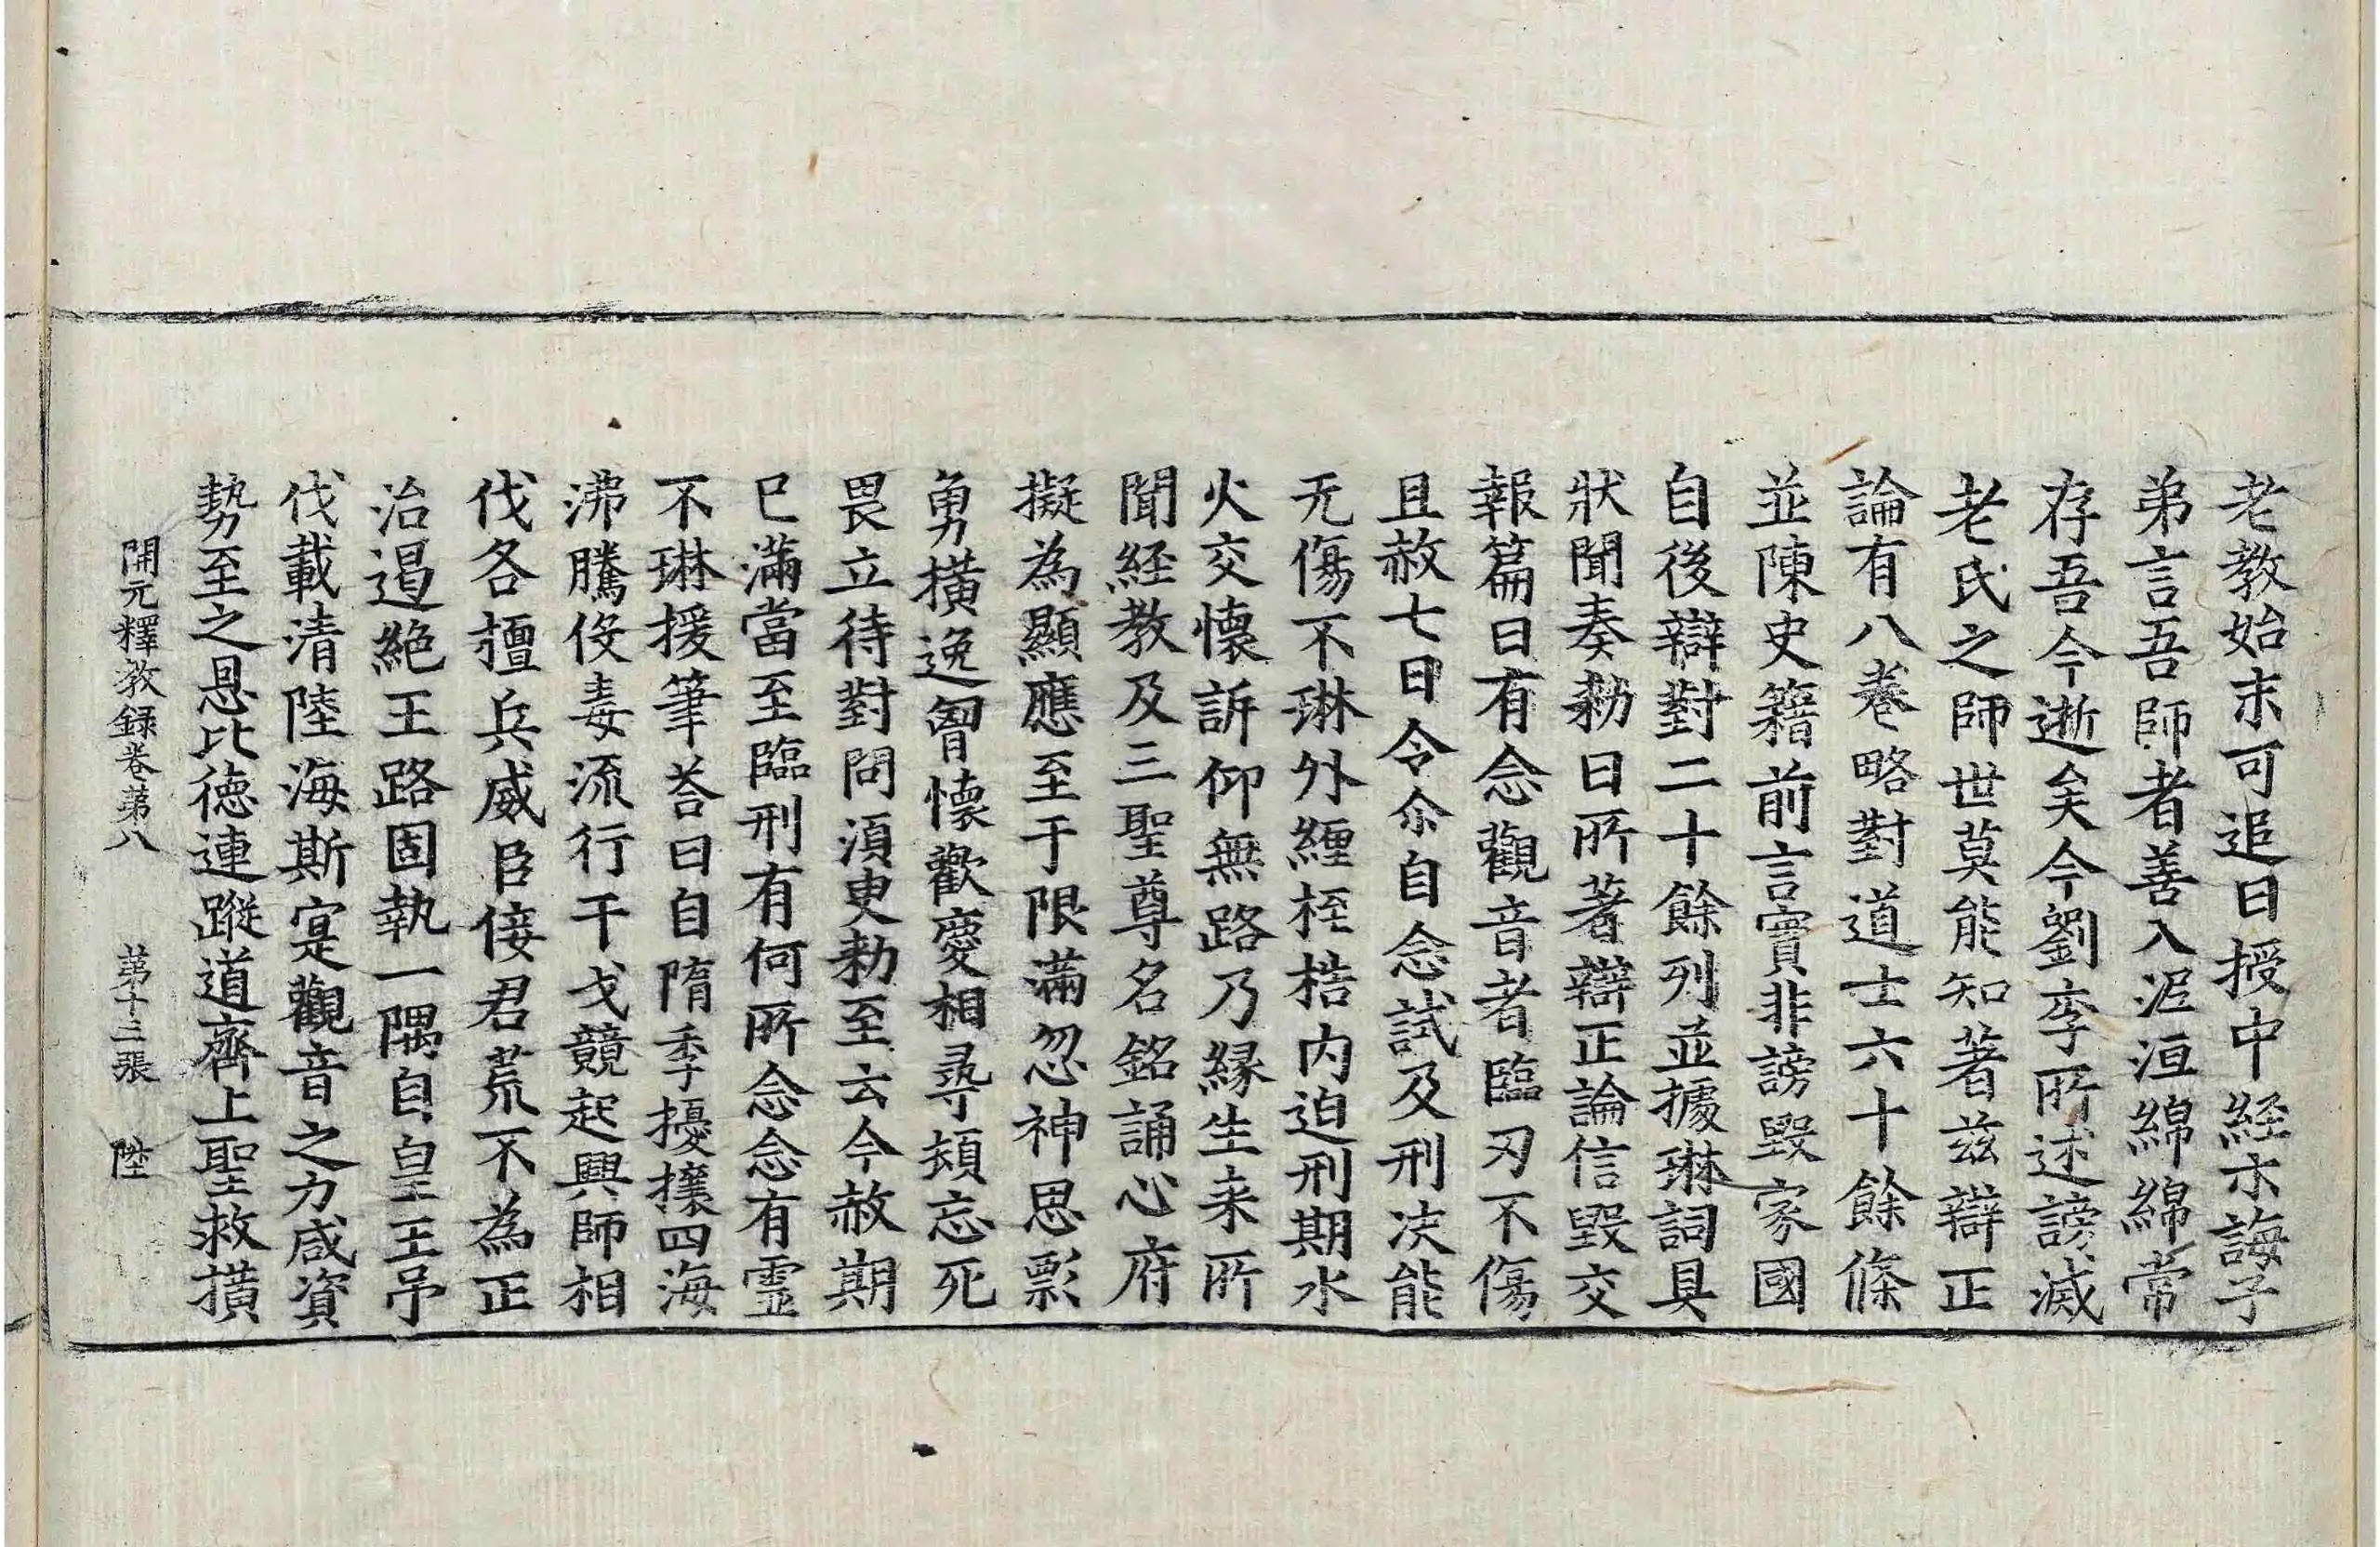 老教始末可追日授中経示誨子
弟言吾師者善入泥洹綿綿常
存吾今逝矣今劉李所述謗滅
老氏之師世莫能知著茲辯正
論有八卷略對道士六十餘條
並陳史籍前言實非謗毀家國
自後辯對二十餘列並據琳詞具
狀聞奏勑曰所著辯正論信毀交
報篇曰有念觀音者臨刃不傷
且赦七日令尒自念試及刑決能
无傷不琳外纏桎梏内迫刑期水
火交懷訴仰無路乃緣生来所
聞経教及三聖尊名銘誦心府
擬為顯應至于限滿忽神思彯
勇横逸胷懷歡慶相尋頓忘死
畏立待對問湏臾勑至云今赦期
已滿當至臨刑有何所念念有靈
不琳援筆荅曰自隋季擾攘四海
沸騰伇毒流行干戈競起興師相
伐各擅兵威臣侫君荒不為正
治遏絶王路固執一隅自皇王弔
伐載清陸海斯寔觀音之力咸資
勢至之恩比徳連蹤道齊上聖救横
開元釋教録卷第八　第十三張　陞